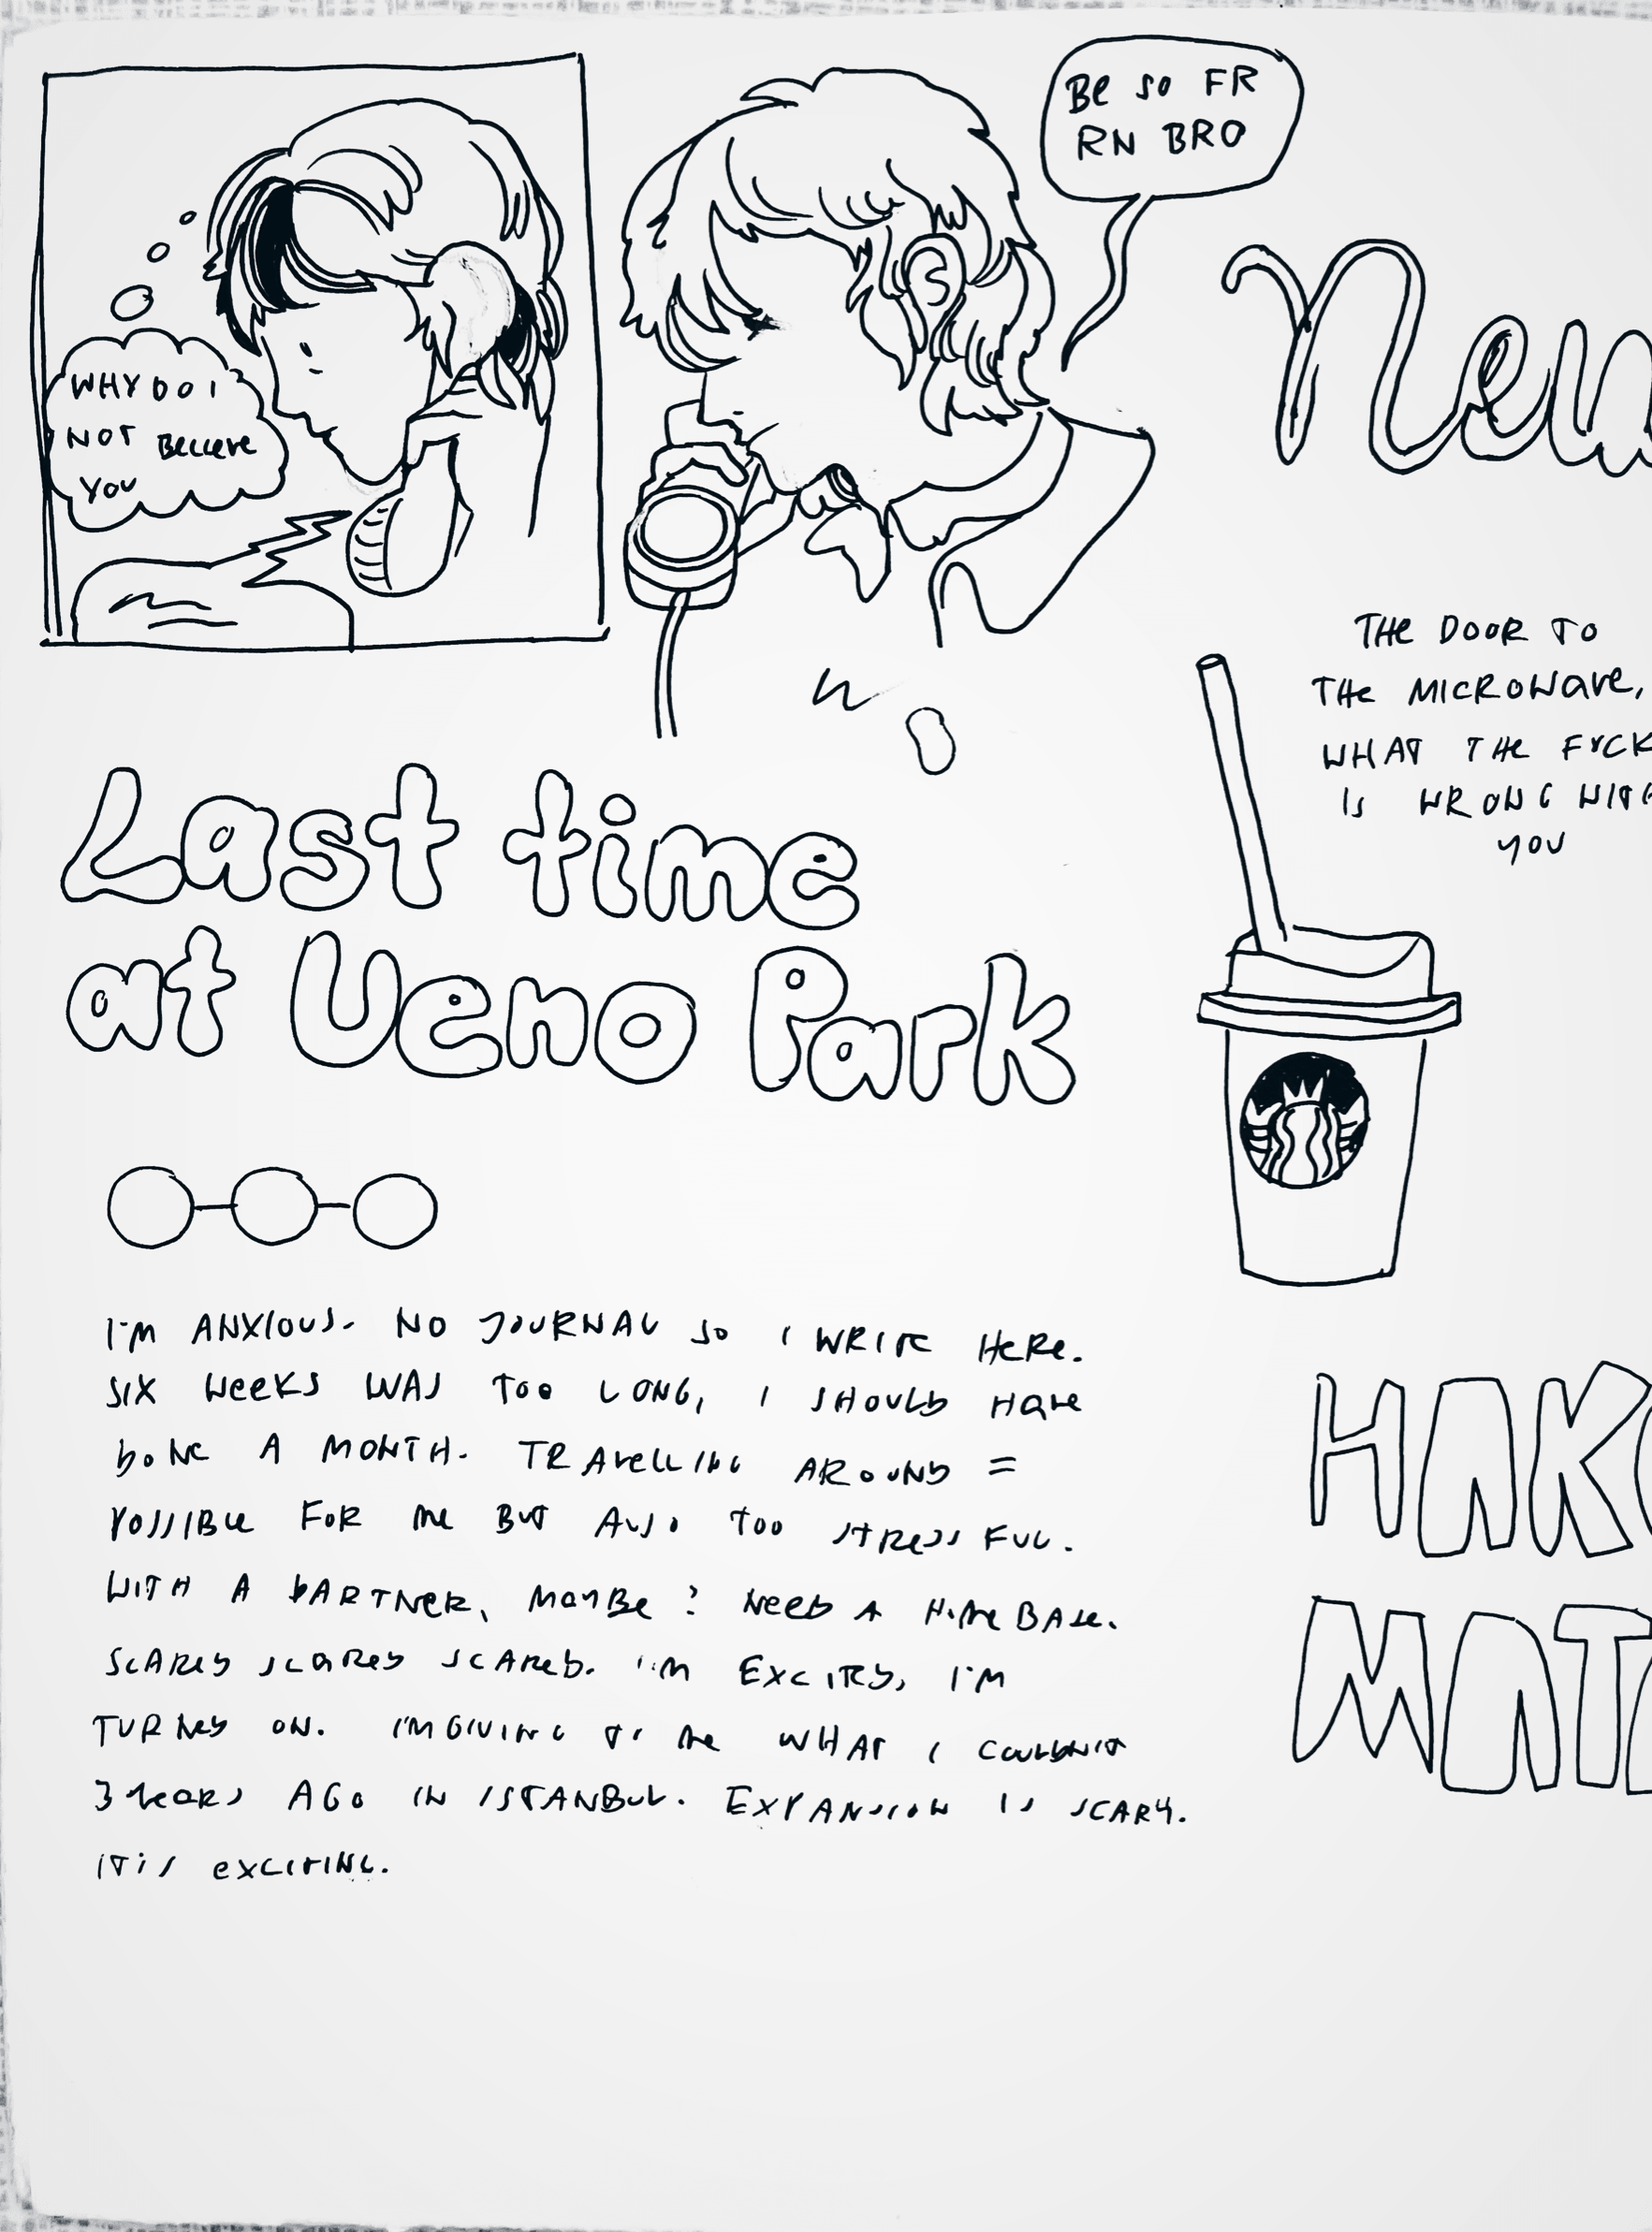 BE SO FR
RN BRO
WHY DO I
NOT BELIEVE
YOU
New
THE DOOR TO
THE MICROWAVE,
WHAT THE FUCK
IS WRONG WITH
YOU
Last time
at Ueno Park
I'M ANXIOUS. NO JOURNAL SO I WRITE HERE.
SIX WEEKS WAS TOO LONG, I SHOULD HAVE
DONE A MONTH. TRAVELLING AROUND =
POSSIBLE FOR ME BUT ALSO TOO STRESSFUL.
WITH A PARTNER, MAYBE? NEED A HOMEBASE.
SCARED SCARED SCARED. I'M EXCITED, I'M
TURNED ON. I'M GIVING TO ME WHAT I COULDN'T
3 YEARS AGO IN ISTANBUL. EXPANSION IS SCARY.
IT IS EXCITING.
HAK
MAT